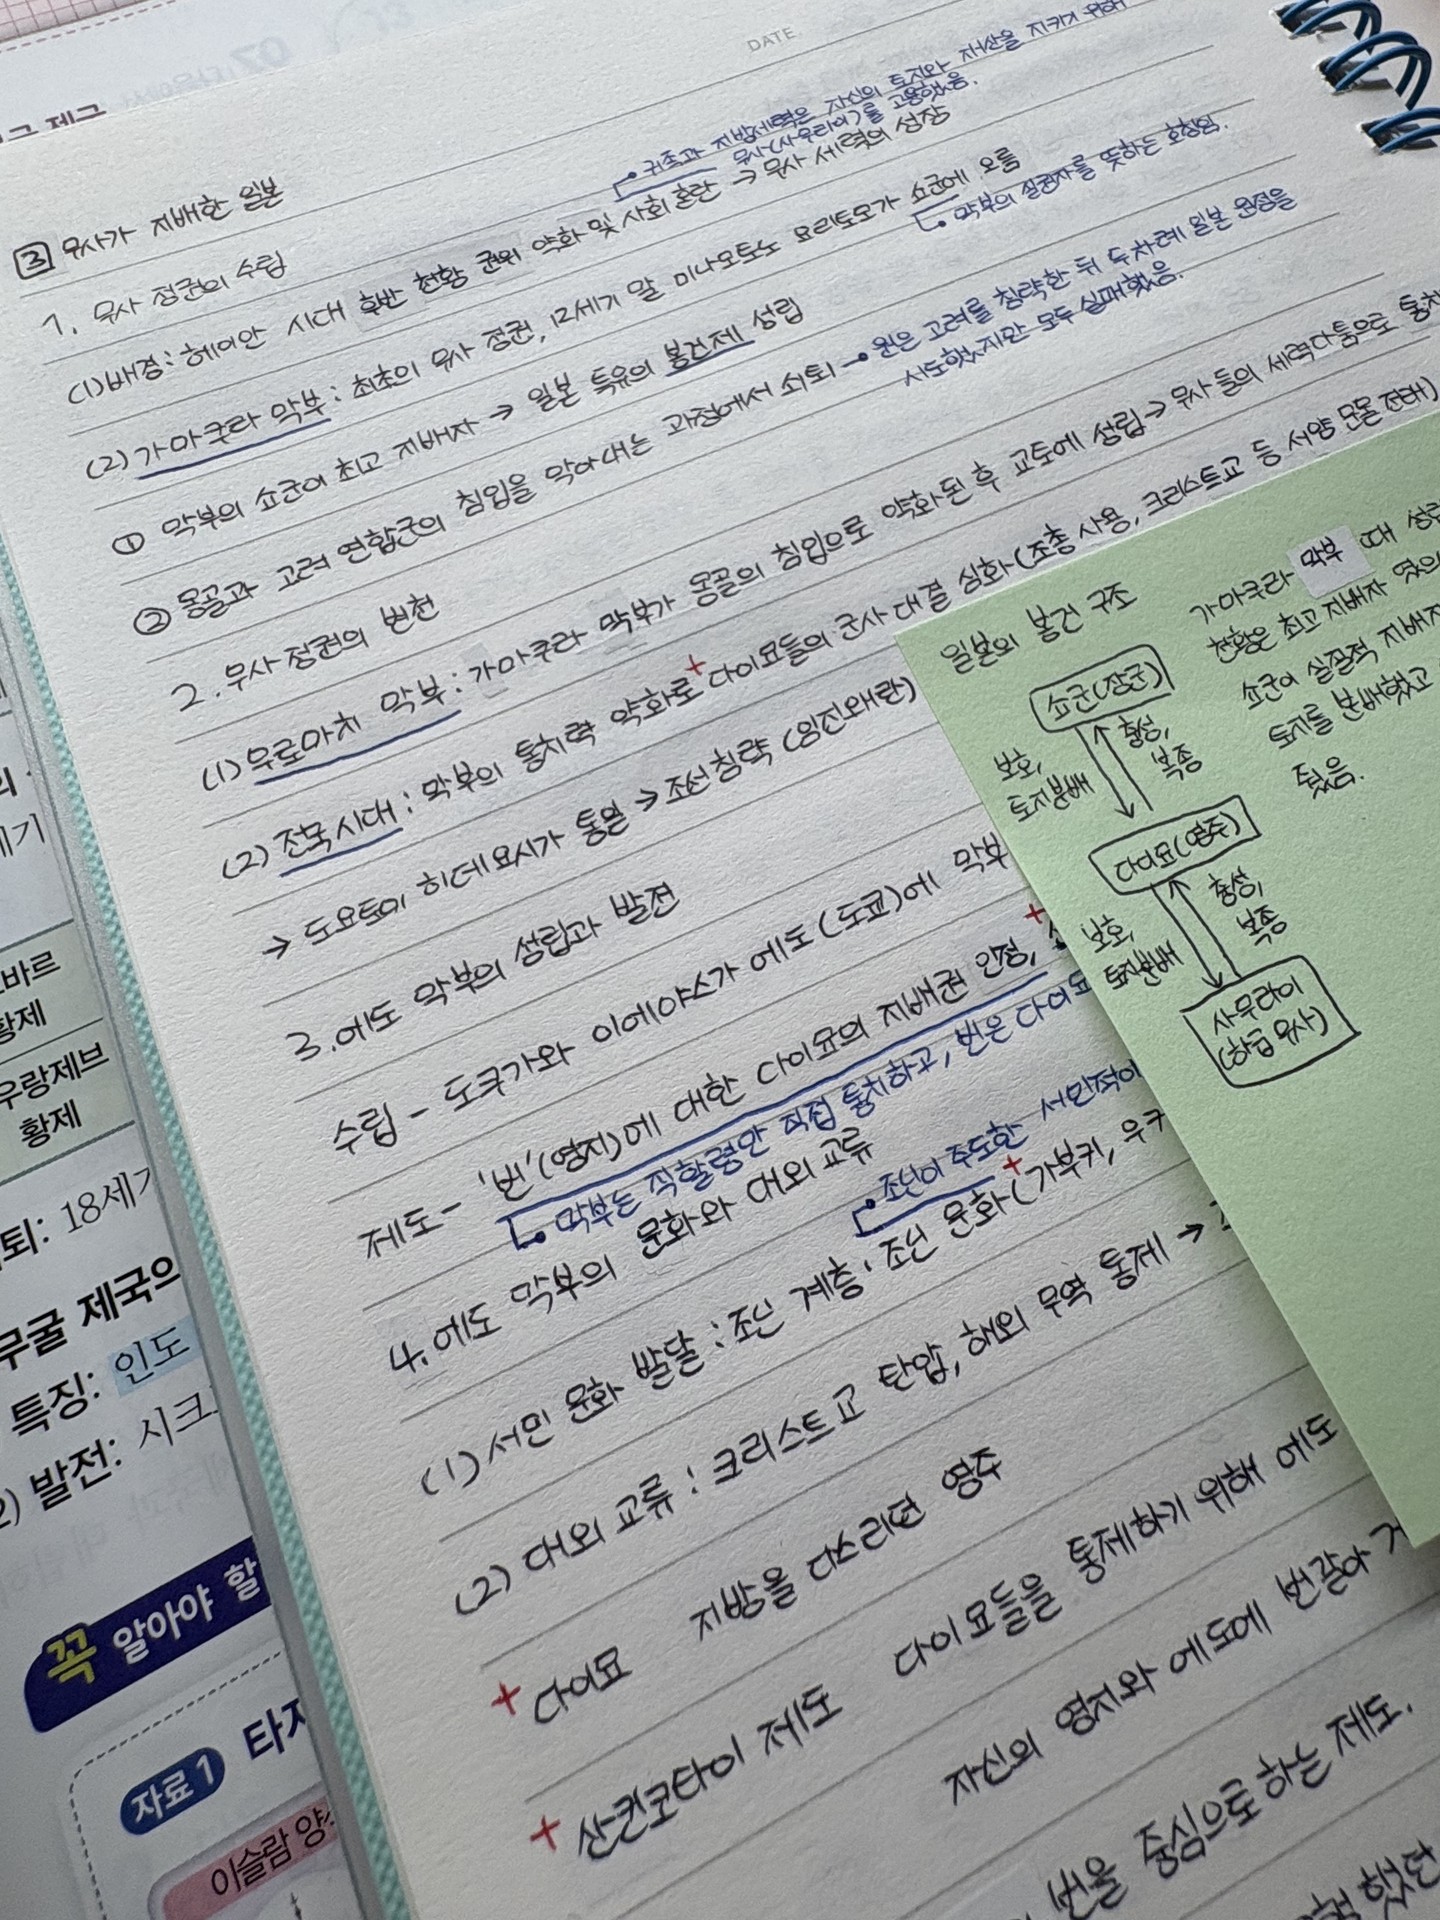 DATE
귀족과 지방세력은 자신의 토지와 재산을 지키기 위해
무사(사무라이)를 고용했음.
③ 무사가 지배한 일본
1. 무사 정권의 수립
(1) 배경: 헤이안 시대 후반 천황 권위 약화 및 사회 혼란 → 무사 세력의 성장
(2) 가마쿠라 막부: 최초의 무사 정권, 12세기 말 미나모토노 요리토모가 쇼군에 오름
막부의 실권자를 뜻하는 호칭임.
① 막부의 쇼군이 최고 지배자 → 일본 특유의 봉건제 성립
② 몽골과 고려 연합군의 침입을 막아내는 과정에서 쇠퇴
원은 고려를 침략한 뒤 두차례 일본 원정을
시도했지만 모두 실패했음.
2. 무사 정권의 변천
(1) 무로마치 막부: 가마쿠라 막부가 몽골의 침입으로 약화된 후 교토에 성립 → 무사 들의 세력다툼으로 통치
(2) 전국시대: 막부의 통치력 약화로 + 다이묘들의 군사 대결 심화 (조총 사용, 크리스트교 등 서양 문물 전래)
→ 도요토미 히데요시가 통일 → 조선 침략 (임진왜란)
3. 에도 막부의 성립과 발전
수립 - 도쿠가와 이에야스가 에도(도쿄)에 막부
제도 - '번'(영지)에 대한 다이묘의 지배권 인정, +
막부는 직할령만 직접 통치하고, 번은 다이묘
4. 에도 막부의 문화와 대외 교류
조닌이 주도한 서민적이
(1) 서민 문화 발달: 조닌 계층, 조닌 문화 + (가부키, 우키
(2) 대외 교류: 크리스트교 탄압, 해외 무역 통제 →
+ 다이묘 지방을 다스리던 영주
+ 산킨코타이 제도 다이묘들을 통제하기 위해 에도
자신의 영지와 에도에 번갈아 거
번을 중심으로 하는 제도.
했던
일본의 봉건 구조
쇼군(장군)
보호,
토지분배
충성,
복종
다이묘(영주)
보호,
토지분배
충성,
복종
사무라이
(하급 무사)
가마쿠라 막부 때 성립
천황은 최고 지배자 였으
쇼군이 실질적 지배자
토지를 분배했고
줬음.
세기
바르
황제
우랑제브
황제
퇴: 18세기
무굴 제국의
특징: 인도
2) 발전: 시크
꼭 알아야 할
자료 1 타지
이슬람 양식